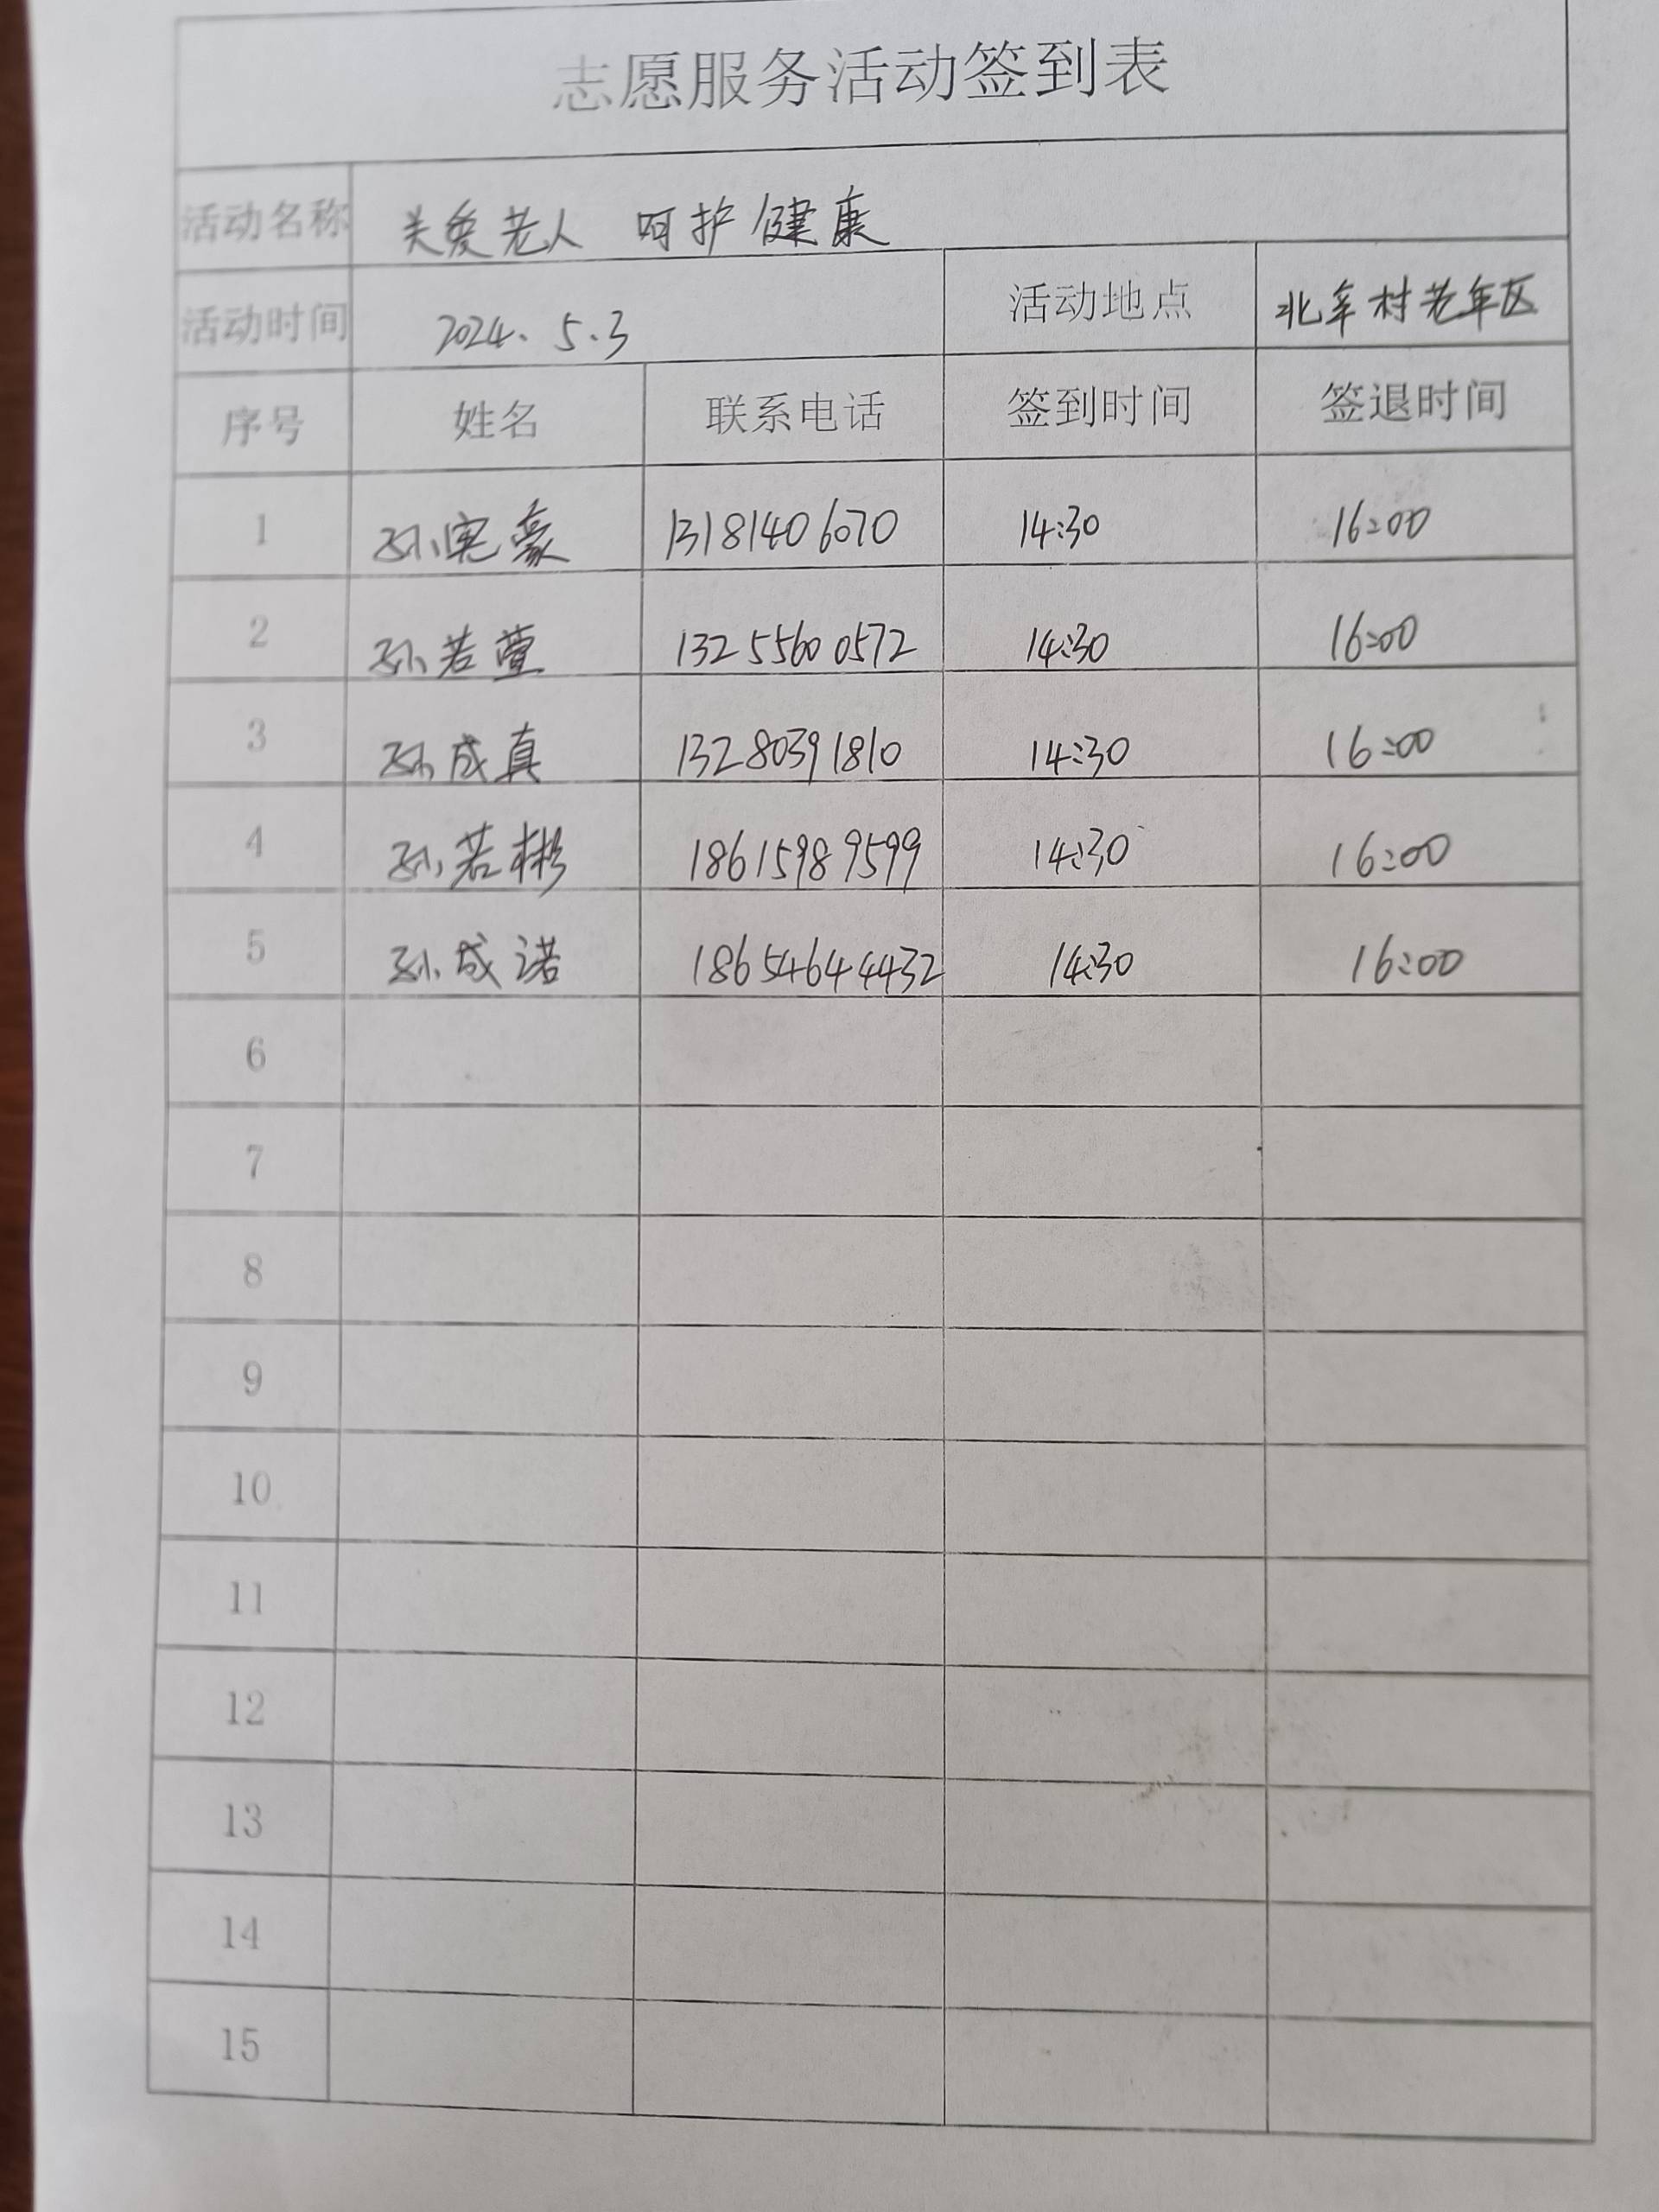 志愿服务活动签到表
活动名称 关爱老人 呵护健康
活动时间 2024.5.3 活动地点 北车村老年区
序号 姓名 联系电话 签到时间 签退时间
1 孙宪豪 13181406070 14:30 16:00
2 孙若萱 13255600572 14:30 16:00
3 孙成真 13280391810 14:30 16:00
4 孙若彬 18615989599 14:30 16:00
5 孙成诺 18654644432 14:30 16:00
6
7
8
9
10
11
12
13
14
15